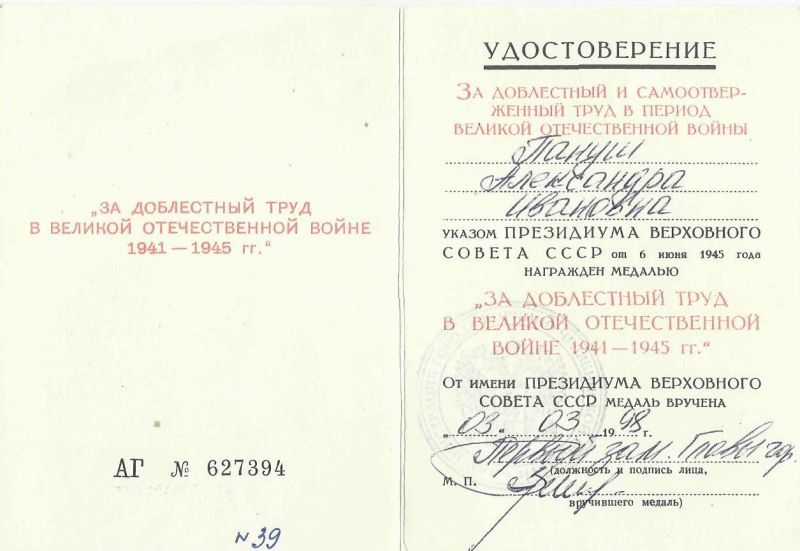 „ЗА ДОБЛЕСТНЫЙ ТРУД
В ВЕЛИКОЙ ОТЕЧЕСТВЕННОЙ ВОЙНЕ
1941—1945 гг.“
АГ № 627394
N 39
УДОСТОВЕРЕНИЕ
ЗА ДОБЛЕСТНЫЙ И САМООТВЕР-
ЖЕННЫЙ ТРУД В ПЕРИОД
ВЕЛИКОЙ ОТЕЧЕСТВЕННОЙ ВОЙНЫ
Пануш
Александра
Ивановна
УКАЗОМ ПРЕЗИДИУМА ВЕРХОВНОГО
СОВЕТА СССР от 6 июня 1945 года
НАГРАЖДЕН МЕДАЛЬЮ
„ЗА ДОБЛЕСТНЫЙ ТРУД
В ВЕЛИКОЙ ОТЕЧЕСТВЕННОЙ
ВОЙНЕ 1941—1945 гг.“
От имени ПРЕЗИДИУМА ВЕРХОВНОГО
СОВЕТА СССР МЕДАЛЬ ВРУЧЕНА
„03“ 03 1998 г.
Первый зам. Главы
(должность и подпись лица,
М. П.
вручившего медаль)